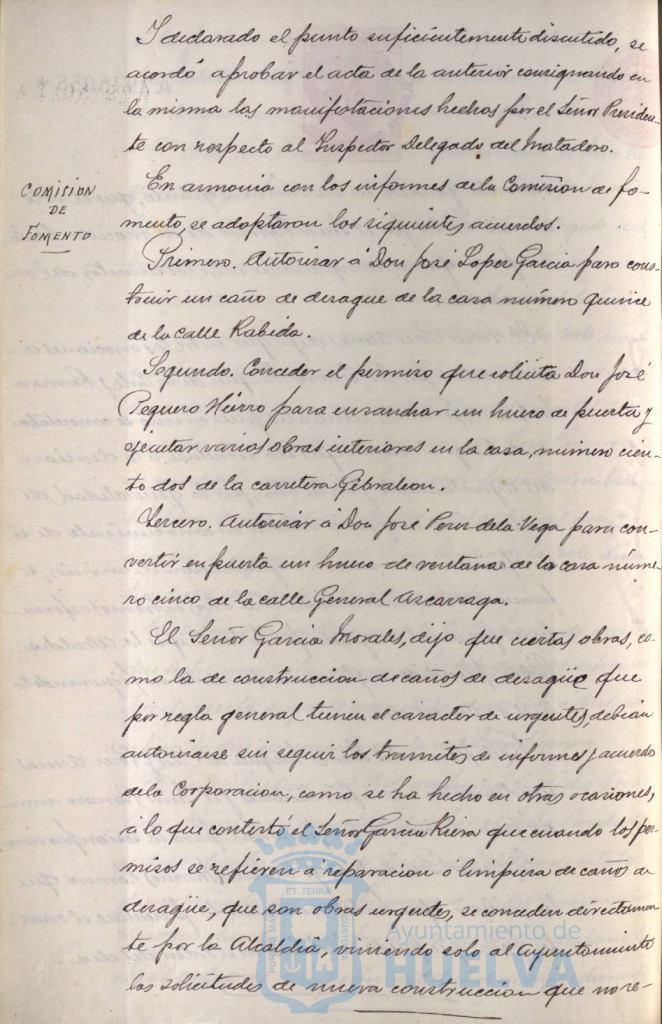 I declarado el punto suficientemente discutido, se
acordó aprobar el acta de la anterior consignando en
la misma las manifestaciones hechas por el Señor Presiden-
te con respecto al Inspector Delegado del Matadero.
COMISION
DE
FOMENTO
En armonia con los informes de la Comision de fo-
mento, se adoptaron los siguientes acuerdos.
Primero. Autorizar á Don José Lopez Garcia para cons-
truir un caño de desague de la casa número quince
de la calle Rabida.
Segundo. Conceder el permiso que solicita Don José
Peguero Hierro para ensanchar un hueco de puerta y
ejecutar varias obras interiores en la casa, número cien-
to dos de la carretera Gibraleon.
Tercero. Autorizar á Don José Perez de la Vega para con-
vertir en puerta un hueco de ventana de la casa núme-
ro cinco de la calle General Azcarraga.
El Señor Garcia Morales, dijo que ciertas obras, co-
mo la de construccion de caños de desagüe que
por regla general tienen el caracter de urgentes, debian
autorizarse sin seguir los tramites de informes y acuerdo
de la Corporacion, como se ha hecho en otras ocasiones,
á lo que contestó el Señor Garcia Riera que cuando los per-
misos se refieren á reparacion ó limpieza de caños de
desagüe, que son obras urgentes, se conceden directamen
te por la Alcaldia, viniendo solo al Ayuntamiento
las solicitudes de nueva construccion que no re-
ET TERRA
Ayuntamiento de
HUELVA